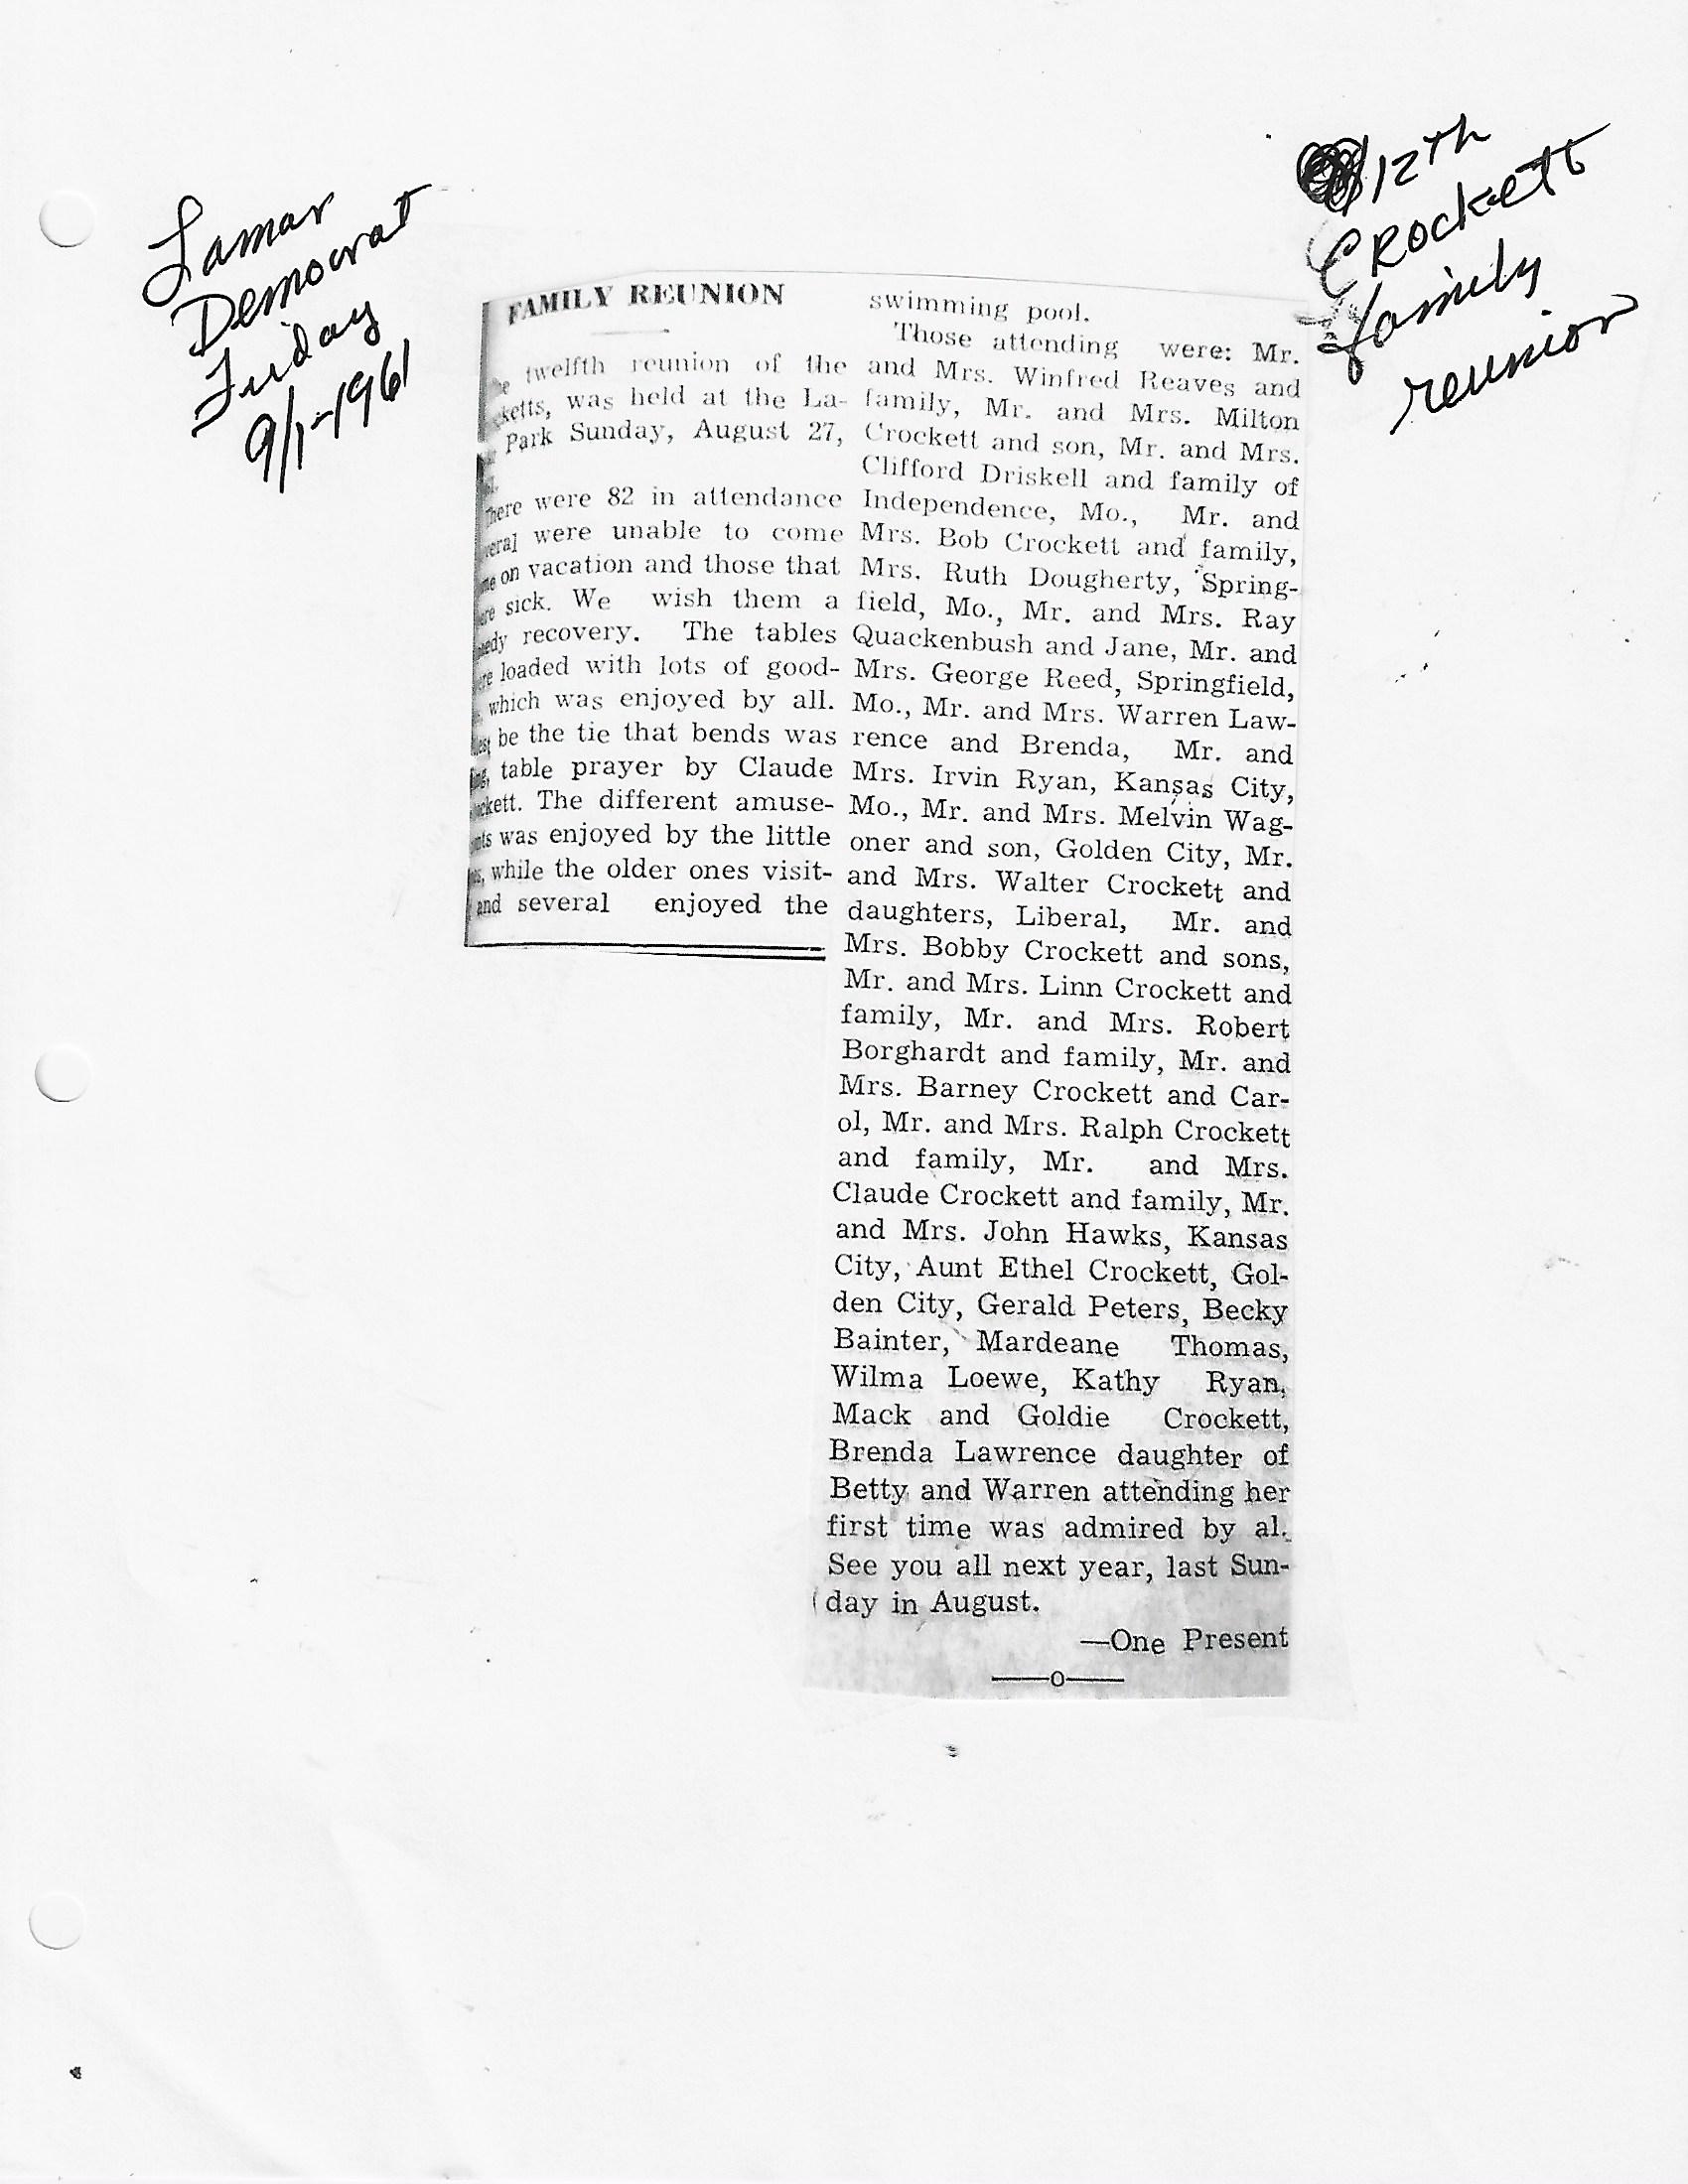 Lamar
Democrat
Friday
9/1-1961
12th
Crockett
family
reunion
FAMILY REUNION
twelfth reunion of the
ketts, was held at the La-
Park Sunday, August 27,
here were 82 in attendance
eral were unable to come
me on vacation and those that
ere sick. We wish them a
eedy recovery. The tables
ere loaded with lots of good-
which was enjoyed by all.
lest be the tie that bends was
ng, table prayer by Claude
ockett. The different amuse-
nts was enjoyed by the little
es, while the older ones visit-
and several enjoyed the
swimming pool.
Those attending were: Mr.
and Mrs. Winfred Reaves and
family, Mr. and Mrs. Milton
Crockett and son, Mr. and Mrs.
Clifford Driskell and family of
Independence, Mo., Mr. and
Mrs. Bob Crockett and family,
Mrs. Ruth Dougherty, Spring-
field, Mo., Mr. and Mrs. Ray
Quackenbush and Jane, Mr. and
Mrs. George Reed, Springfield,
Mo., Mr. and Mrs. Warren Law-
rence and Brenda, Mr. and
Mrs. Irvin Ryan, Kansas City,
Mo., Mr. and Mrs. Melvin Wag-
oner and son, Golden City, Mr.
and Mrs. Walter Crockett and
daughters, Liberal, Mr. and
Mrs. Bobby Crockett and sons,
Mr. and Mrs. Linn Crockett and
family, Mr. and Mrs. Robert
Borghardt and family, Mr. and
Mrs. Barney Crockett and Car-
ol, Mr. and Mrs. Ralph Crockett
and family, Mr. and Mrs.
Claude Crockett and family, Mr.
and Mrs. John Hawks, Kansas
City, Aunt Ethel Crockett, Gol-
den City, Gerald Peters, Becky
Bainter, Mardeane Thomas,
Wilma Loewe, Kathy Ryan,
Mack and Goldie Crockett,
Brenda Lawrence daughter of
Betty and Warren attending her
first time was admired by al.
See you all next year, last Sun-
day in August.
—One Present
——o——